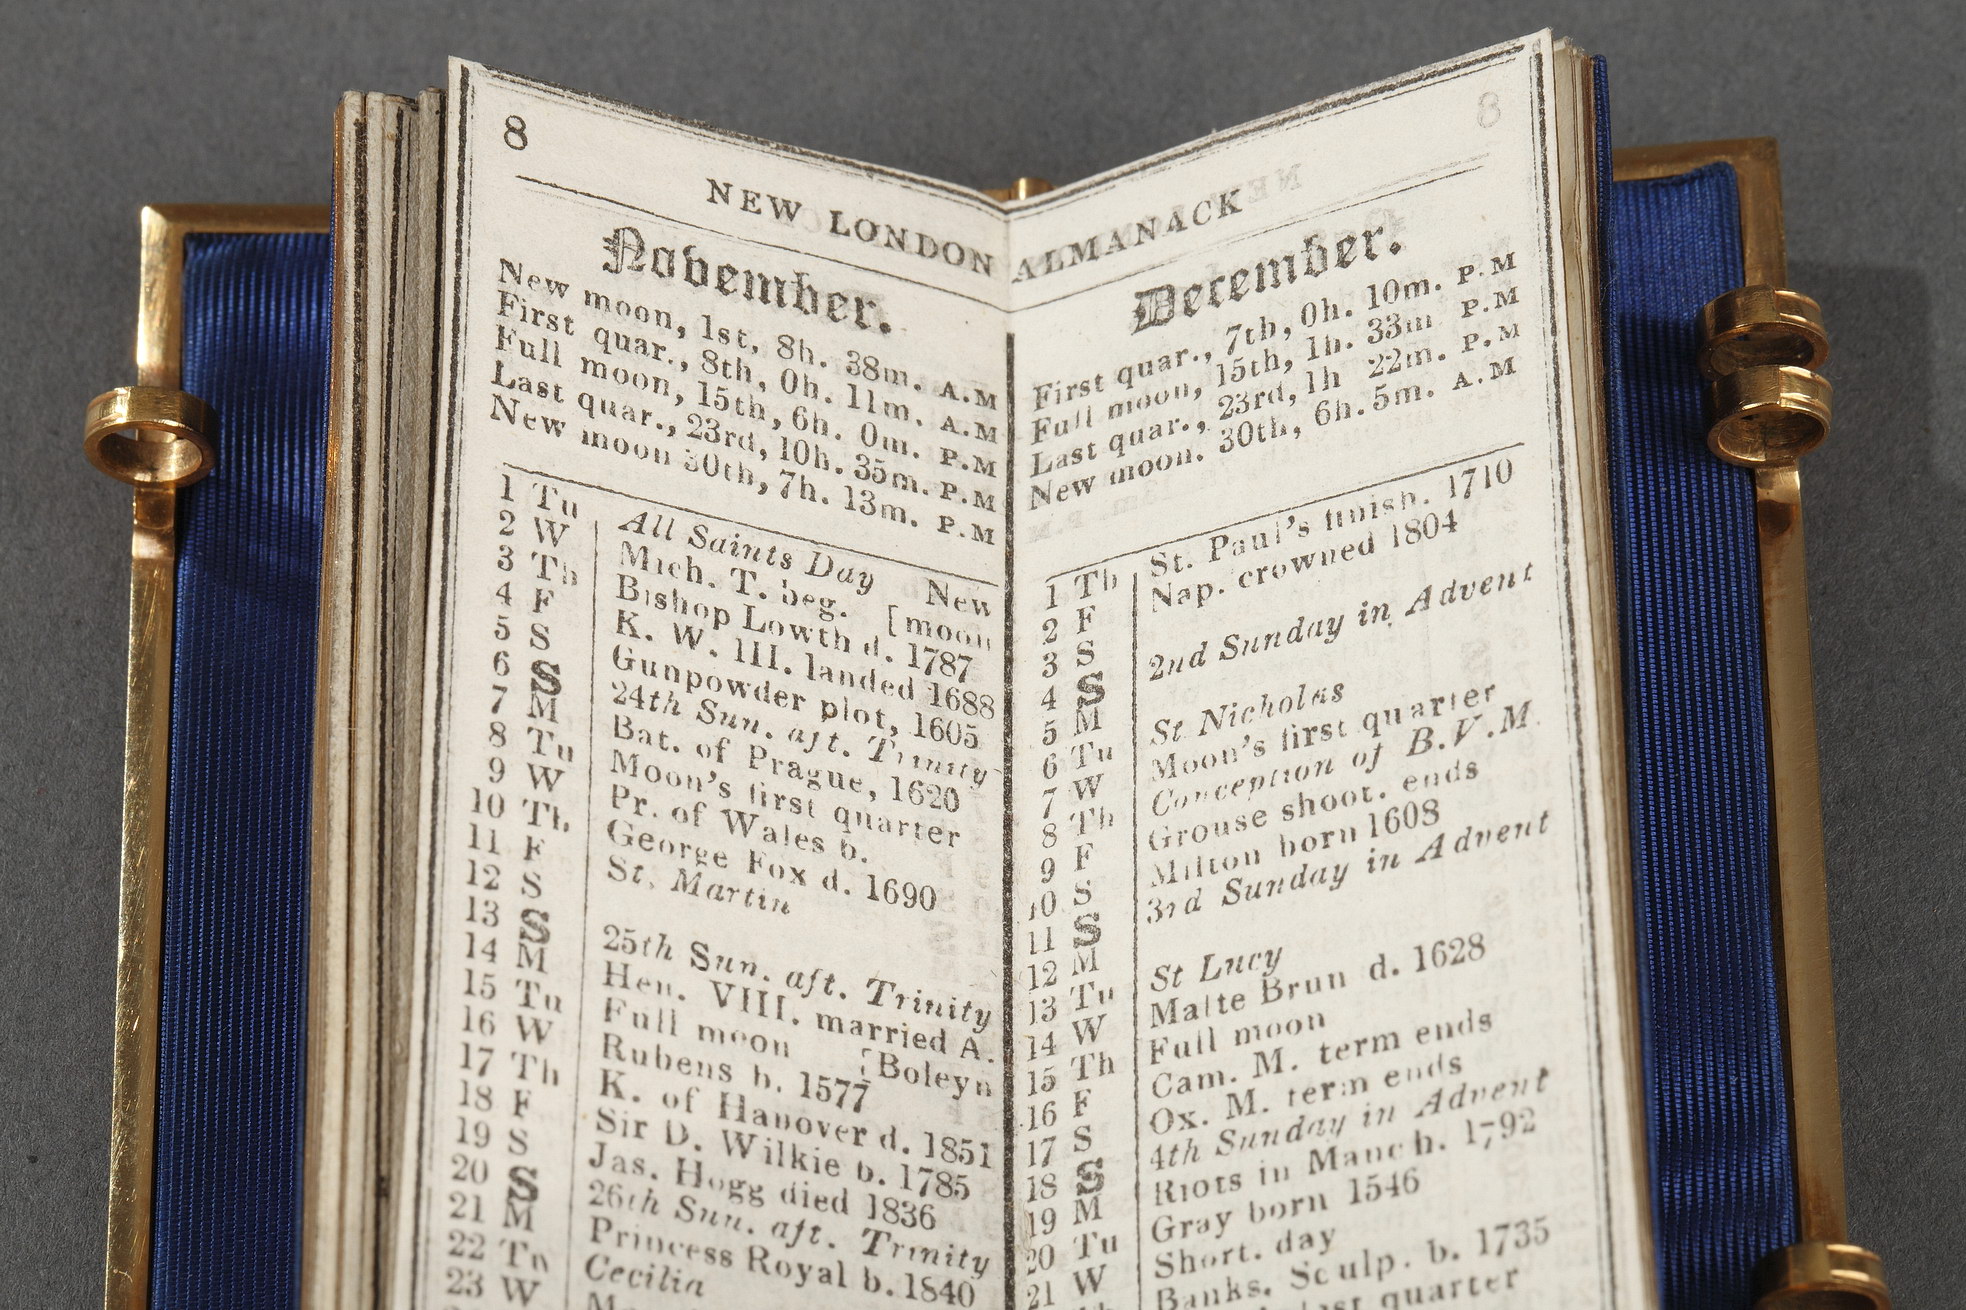 8
NEW LONDON
November.
New moon, 1st, 8h. 38m. A.M
First quar., 8th, 0h. 11m. A.M
Full moon, 15th, 6h. 0m. P.M
Last quar., 23rd, 10h. 35m. P.M
New moon 30th, 7h. 13m. P.M
1 Tu All Saints Day New
2 W Mich. T. beg. [moon
3 Th Bishop Lowth d. 1787
4 F K. W. III. landed 1688
5 S Gunpowder plot, 1605
6 S 24th Sun. aft. Trinity
7 M Bat. of Prague, 1620
8 Tu Moon's first quarter
9 W Pr. of Wales b.
10 Th George Fox d. 1690
11 F St. Martin
12 S
13 S 25th Sun. aft. Trinity
14 M Hen. VIII. married A.
15 Tu Full moon [Boleyn
16 W Rubens b. 1577
17 Th K. of Hanover d. 1851
18 F Sir D. Wilkie b. 1785
19 S Jas. Hogg died 1836
20 S 26th Sun. aft. Trinity
21 M Princess Royal b. 1840
22 Tu Cecilia
23 W
8
ALMANACK
December.
First quar., 7th, 0h. 10m. P.M
Full moon, 15th, 1h. 33m P.M
Last quar., 23rd, 1h 22m. P.M
New moon. 30th, 6h. 5m. A.M
1 Th St. Paul's finish. 1710
2 F Nap. crowned 1804
3 S
4 S 2nd Sunday in Advent
5 M
6 Tu St Nicholas
7 W Moon's first quarter
8 Th Conception of B.V.M.
9 F Grouse shoot. ends
10 S Milton born 1608
11 S 3rd Sunday in Advent
12 M
13 Tu St Lucy
14 W Malte Brun d. 1628
15 Th Full moon
16 F Cam. M. term ends
17 S Ox. M. term ends
18 S 4th Sunday in Advent
19 M Riots in Manch. 1792
20 Tu Gray born 1546
21 W Short. day
Banks, Sculp. b. 1735
last quarter